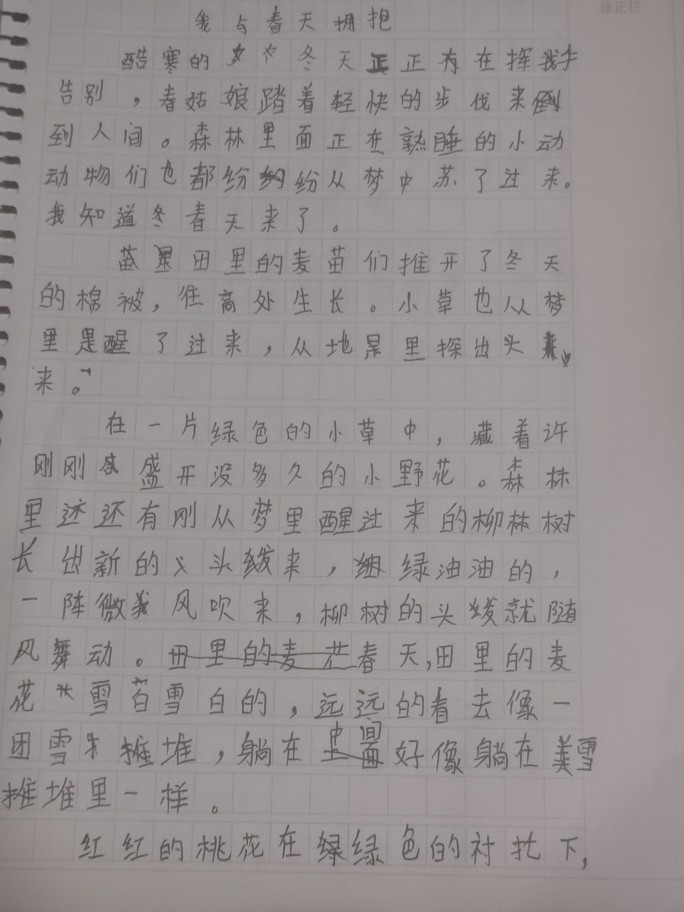 我与春天拥抱
酷寒的冬天正在挥手
告别，春姑娘踏着轻快的步伐来到
到人间。森林里面正在熟睡的小动
动物们也都纷纷从梦中苏了过来。
我知道春天来了。
田里的麦苗们推开了冬天
的棉被，往高处生长。小草也从梦
里醒了过来，从地里探出头
来。
在一片绿色的小草中，藏着许
刚刚盛开没多久的小野花。森林
里还有刚从梦里醒过来的柳树
长出新的头发来，绿油油的，
一阵微风吹来，柳树的头发就随
风舞动。春天，田里的麦
花雪白雪白的，远远的看去像一
团雪堆，躺在中间好像躺在雪
堆里一样。
红红的桃花在绿绿色的衬托下，